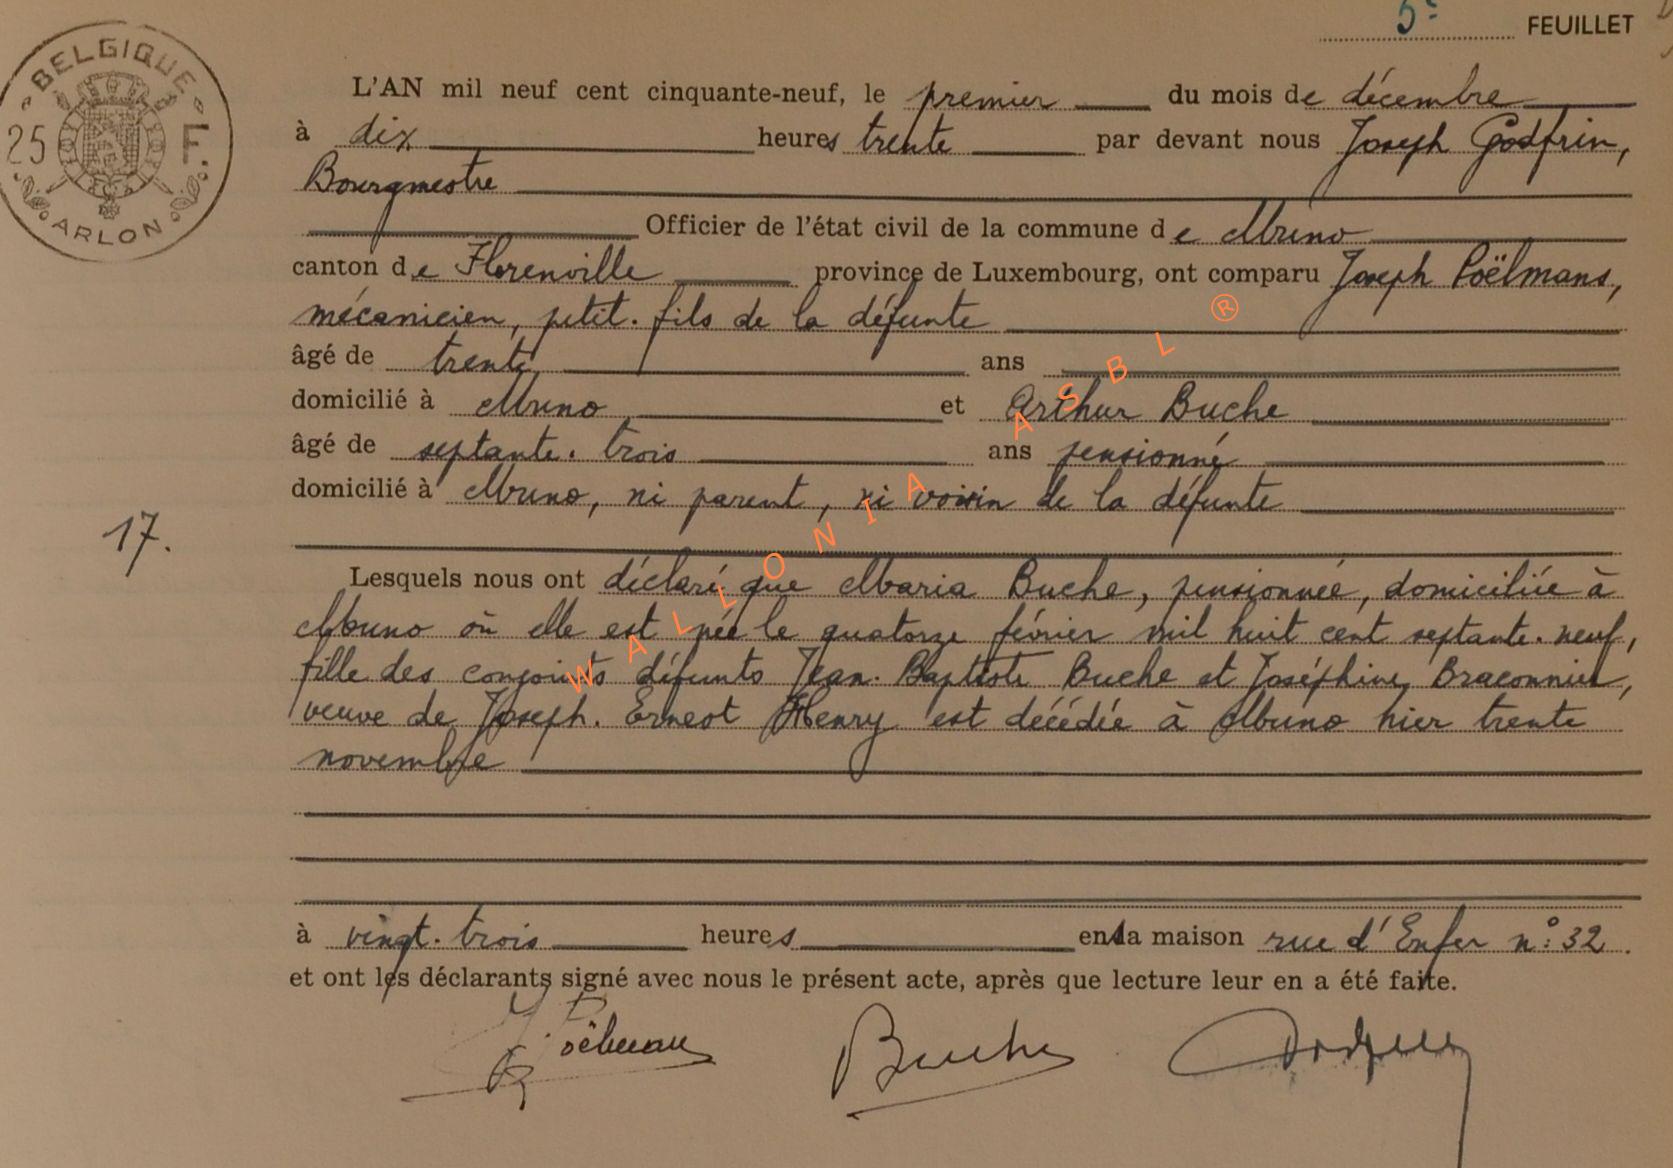 5e FEUILLET
BELGIQUE
25 F.
ARLON
L'AN mil neuf cent cinquante-neuf, le premier du mois de décembre
à dix heures trente par devant nous Joseph Godfrin,
Bourgmestre
Officier de l'état civil de la commune de Muno
canton de Florenville province de Luxembourg, ont comparu Joseph Poëlmans,
mécanicien, petit-fils de la défunte
âgé de trente ans
domicilié à Muno et Arthur Buche
âgé de septante-trois ans pensionné
domicilié à Muno, ni parent, ni voisin de la défunte
17.
Lesquels nous ont déclaré que Maria Buche, pensionnée, domiciliée à
Muno où elle est née le quatorze février mil huit cent septante-neuf,
fille des conjoints défunts Jean-Baptiste Buche et Joséphine Braconnier,
veuve de Joseph-Ernest Henry est décédée à Muno hier trente
novembre
à vingt-trois heures en la maison rue d'Enfer n°: 32.
et ont les déclarants signé avec nous le présent acte, après que lecture leur en a été faite.
J. Poëlmans Buche Godfrin
WALLONIA ASBL ®